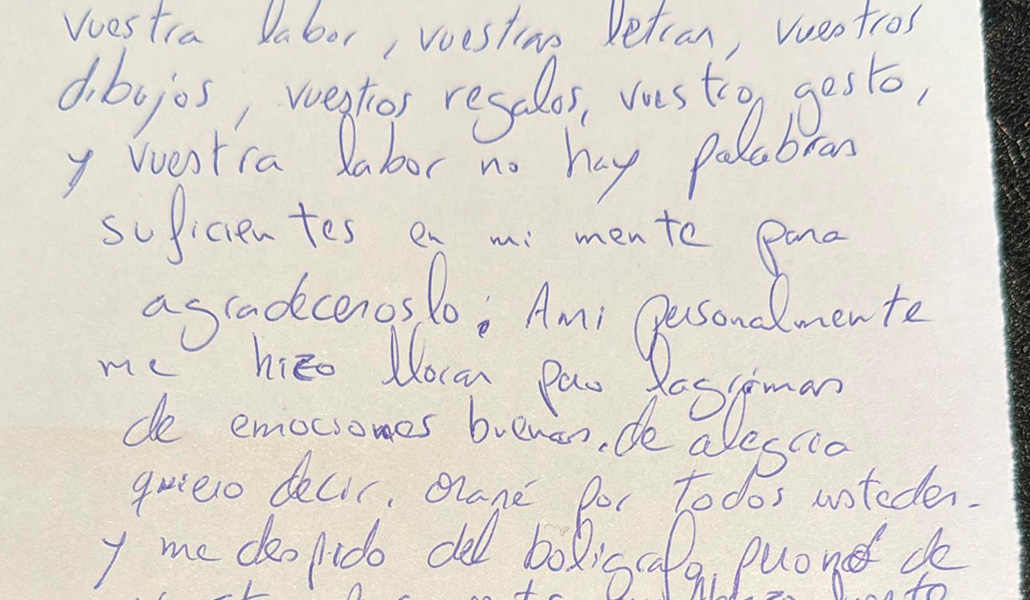 vuestra labor, vuestras letras, vuestros
dibujos, vuestros regalos, vuestro gesto,
y vuestra labor no hay palabras
suficientes en mi mente para
agradeceroslo; Ami personalmente
me hizo llorar pero lagrimas
de emociones buenas, de alegria
quiero decir. Oraré por todos ustedes.
y me despido del boligrafo, pero no de